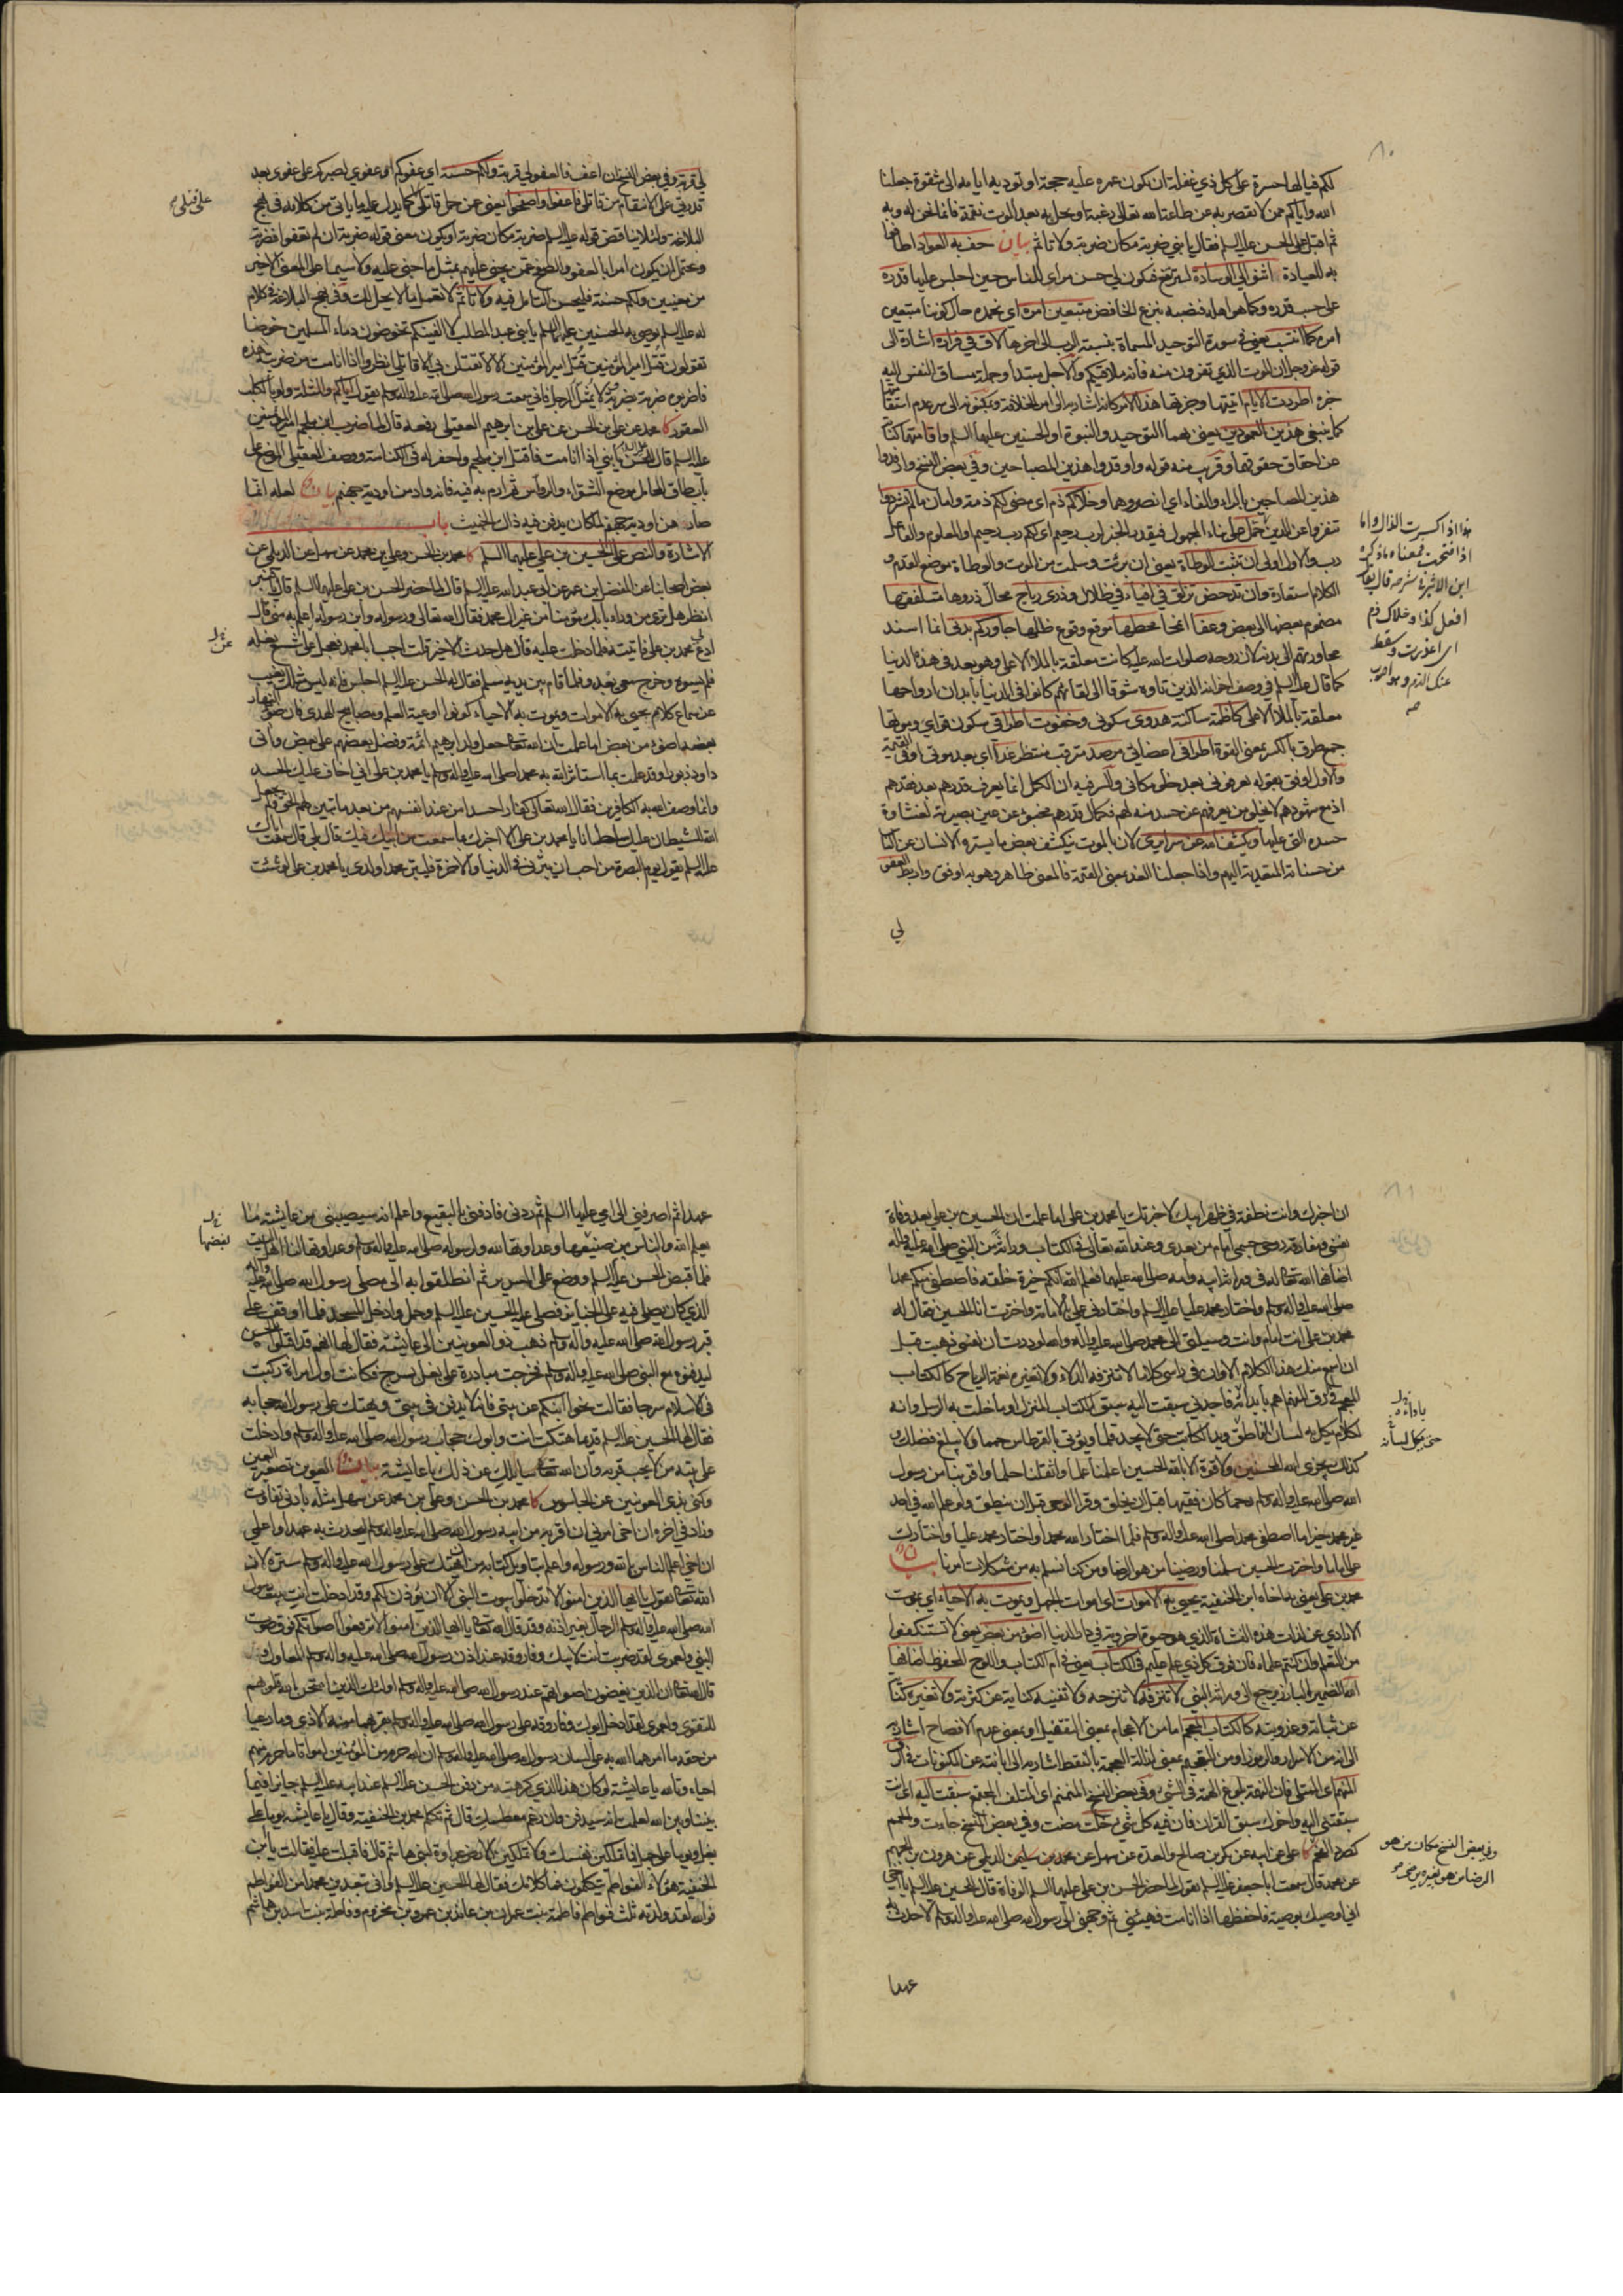 لكم فيالها حسرة على كل ذي غفلة ان يكون عمره عليه حجة او توديه ايامه الى شقوة جعلنا
الله واياكم ممن لا يقصر به عن طاعة الله تعالى رغبة او تحل به بعد الموت نقمة فانما نحن له وبه
ثم اقبل على الحسن عليه السلم فقال يا بني ضربة مكان ضربة ولا تاثم بيان حف به العواد اطافوا
به للعيادة اثنوا لي الوسادة
على حسب قدره وكما هو اهله
امره كما انتسب يعني في سورة التوحيد المسماة بنسبة الرب
قوله عز وجل ان الموت الذي تفرون منه فانه ملاقيكم والاجل مبتدا وجملة مساق النفس اليه
خبره اطردت الايام
كما ينبغي هذين العمودين يعني بهما التوحيد والنبوة او الحسنين عليهما السلم واقامتهما كناية
عن احقاق حقوقهما وقريب منه قوله واوقدوا هذين المصباحين وفي بعض النسخ
هذين المصباحين وخلاكم ذم اي مضى لكم ذمة وامان ما لم تشردوا
تنفروا عن الدين حمل على بناء المجهول فيقدر الخبر لرب رحيم اي لكم رب رحيم
رب والاول اولى ان تثبت الوطأة يعني ان برئت وسلمت من الموت والوطأة موضع القدم و
الكلام استعارة وان تدحض تزلق في افياء في ظلال وذرى رياح محال ذروها متلفقها
مضموم بعضها الى بعض وعفا انمحا محطها موقع وقوع ظلها جاوركم بدني انما اسند
مجاورتهم الى بدنه لان روحه صلوات الله عليه كانت معلقة بالملأ الاعلى وهو بعد في هذه الدنيا
كما قال عليه السلم في وصف اخوانه الذين تاوه شوقا الى لقائهم كانوا في الدنيا بابدان ارواحها
معلقة بالملأ الاعلى كاظمة ساكنة هدوي سكوني وخفوت اطراقي سكون قواي وموتها
جمع طرق بالكسر بمعنى القوة اطرافي اعضائي مرصد مترقب منتظر غدا اي بعد موتي او في القيمة
والاول اوفق بقوله تعرفوني بعد خلو مكاني والسر فيه ان الكمل انما يعرف قدرهم بعد فقدهم
اذ مع شهودهم لا يخلو من يعرفهم عن حسد منه لهم فكمال قدرهم مخبو عن عين بصيرته لغشاوة
حسده التي عليها ويكشف الله عن سرايري لان بالموت ينكشف بعض ما يستره الانسان عن الناس
من حسناته المتعدية اليهم واذا جعلنا الغد بمعنى القيمة فالمعنى ظاهر وهو به اوفق واربط العفو
لي
هذا اذا كسرت الذال واما
اذا فتحت فمعناه ما ذكره
ابن الاثير في شرحه قال يقال
افعل كذا وخلاك ذم
اي اعذرت وسقط
عنك الذم وهو اصوب
لي قربة وفي بعض النسخ ان اعف فالعفو لي قربة ولكم حسنة اي عفوكم او عفوي لصبركم على عفوي بعد
قدرتي على الانتقام من قاتلي فاعفوا واصفحوا يعني عن حمل قاتلي كما يدل عليه ما ياتي من كلامه في نهج
البلاغة ولئلا يناقض قوله عليه السلم ضربة مكان ضربة او يكون معنى قوله ضربة ان لم تعفوا فضربة
ويحتمل ان يكون امرا بالعفو والصفح عمن يجني عليهم بمثل ما جني عليه ولا سيما على المعنى الاخير
من معنيين ولكم حسنة فليحسن التامل فيه ولا تاثم لا تعمل ما لا يحل لك وفي نهج البلاغة في كلام
له عليه السلم يوصي به الحسنين عليهما السلم يا بني عبد المطلب لا الفينكم تخوضون دماء المسلمين خوضا
تقولون قتل امير المؤمنين قتل امير المؤمنين الا لا تقتلن بي الا قاتلي انظروا اذا انا مت من ضربته هذه
فاضربوه ضربة بضربة ولا يمثل بالرجل فاني سمعت رسول الله صلى الله عليه واله وسلم يقول اياكم والمثلة ولو بالكلب
العقور كا محمد عن علي بن الحسن عن علي بن ابرهيم العقيلي رفعه قال لما ضرب ابن ملجم امير المؤمنين
عليه السلم قال للحسن يا بني اذا انا مت فاقتل ابن ملجم واحفر له في الكناسة ووصف العقيلي الموضع على
باب طاق المحامل موضع الشواء والرؤاس ثم ارم به فيه فانه واد من اودية جهنم بيان لعله انما
صار من اودية جهنم لمكان يدفن فيه ذاك الخبيث باب
الاشارة والنص على الحسين بن علي عليهما السلم كا محمد بن الحسن وعلي بن محمد عن سهل عن الديلمي عن
بعض اصحابنا عن المفضل بن عمر عن ابي عبد الله عليه السلم قال لما حضر الحسن بن علي عليهما السلم قال يا قنبر
انظر هل ترى من وراء بابك مؤمنا من غير ال محمد فقال الله تعالى ورسوله وابن رسوله اعلم به مني قال
ادع لي محمد بن علي فاتيته فلما دخلت عليه قال هل حدث الا خير قلت اجب ابا محمد فعجل على شسع نعله
فلم يسوه وخرج معي يعدو فلما قام بين يديه سلم فقال له الحسن عليه السلم اجلس فانه ليس مثلك يغيب
عن سماع كلام يحيى به الاموات ويموت به الاحياء كونوا اوعية العلم ومصابيح الهدى فان ضوء النهار
بعضه اضوء من بعض اما علمت ان الله تعالى جعل ولد ابراهيم ائمة وفضل بعضهم على بعض واتى
داود زبورا وقد علمت بما استاثر به محمدا صلى الله عليه واله وسلم يا محمد بن علي اني اخاف عليك الحسد
وانما وصف الله به الكافرين فقال الله تعالى كفارا حسدا من عند انفسهم من بعد ما تبين لهم الحق ولم يجعل
الله للشيطان عليك سلطانا يا محمد بن علي الا اخبرك بما سمعت من ابيك فيك قال بلى قال سمعت اباك
عليه السلم يقول يوم البصرة من احب ان يبرني في الدنيا والاخرة فليبر محمدا ولدي يا محمد بن علي لو شئت
ان اخبرك وانت نطفة في ظهر ابيك لاخبرتك يا محمد بن علي اما علمت ان الحسين بن علي بعد وفاة
نفسي ومفارقة روحي جسمي امام من بعدي وعند الله تعالى في الكتاب وراثة من النبي صلى الله عليه واله
اضافها الله تعالى له في وراثة ابيه وامه صلى الله عليهما فعلم الله انكم خيرة خلقه فاصطفى منكم محمدا
صلى الله عليه واله وسلم واختار محمد عليا عليه السلم واختارني علي بالامامة واخترت انا الحسين فقال له
محمد بن علي انت امام وانت وسيلتي الى محمد صلى الله عليه واله والله لوددت ان نفسي ذهبت قبل
ان اسمع منك هذا الكلام الا وان في راسي كلاما لا تنزفه الدلاء ولا تغيره نغمة الرياح كالكتاب
المعجم في الرق المنمنم اهم بابدائه فاجدني سبقت اليه سبق الكتاب المنزل او ما خلت به الرسل وانه
لكلام يكل به لسان الناطق ويد الكاتب حتى لا يجد قلما ويؤتى بالقرطاس حمما ولا يبلغ فضلك و
كذلك يجزي الله المحسنين ولا قوة الا بالله الحسين اعلمنا علما واثقلنا حلما واقربنا من رسول
الله صلى الله عليه واله وسلم رحما كان فقيها قبل ان يخلق وقرا الوحي قبل ان ينطق ولو علم الله في احد
غير محمد خيرا ما اصطفى محمدا صلى الله عليه واله وسلم فلما اختار الله محمدا واختار محمد عليا واختارك
علي اماما واخترت الحسين سلمنا ورضينا من هو الرضا ومن كنا نسلم به من مشكلات امرنا بيان
محمد بن علي يعني به اخاه ابن الحنفية يحيى به الاموات اي اموات الجهل ويموت به الاحياء اي بموت
الارادي عن لذات هذه النشاة الذي هو حيوة اخروية في دار الدنيا اضوء من بعض يعني لا تستنكفوا
من التعلم وان كنتم علماء فان فوق كل ذي علم عليم في الكتاب يعني في ام الكتاب واللوح المحفوظ اضافها
الله الضمير البارز يرجع الى وراثة النبي لا تنزفه لا تنزحه ولا تفنيه كناية عن كثرته ولا تغيره كناية
عن ثباته وعذوبته كالكتاب المعجم اما من الاعجام بمعنى التقفيل او بمعنى عدم الافصاح اشارة
الى انه من الاسرار والرموز او من التعجيم بمعنى ازالة العجمة بالنقط اشارة الى ابانته عن المكنونات
سبقتني اليه واخوك سبق القران فان فيه كل شيء خلت مضت وفي بعض النسخ جاءت والحمم
كصرد الفحم كا علي عن ابيه عن بكر بن صالح والعدة عن سهل عن محمد بن سليمن الديلمي عن هرون بن الجهم
عن محمد قال سمعت ابا جعفر عليه السلم يقول لما حضر الحسن بن علي عليهما السلم الوفاة قال للحسين عليه السلم يا اخي
اني اوصيك بوصية فاحفظها اذا انا مت فهيئني ثم وجهني الى رسول الله صلى الله عليه واله وسلم لاحدث به
عهدا
حتى يكل لسانه
وفي بعض النسخ مكان من هو
الرضا من هو بغيره يرضى
عهدا ثم اصرفني الى امي عليها السلم ثم ردني فادفني بالبقيع واعلم انه سيصيبني من عايشة ما
يعلم الله والناس من صنيعها وعداوتها لله ولرسوله صلى الله عليه واله وسلم وعداوتها لنا اهل البيت
فلما قبض الحسن عليه السلم ووضع على السرير ثم انطلقوا به الى مصلى رسول الله صلى الله عليه واله
الذي كان يصلي فيه على الجنايز فصلى عليه الحسين عليه السلم وحمل وادخل المسجد فلما اوقف على
قبر رسول الله صلى الله عليه واله وسلم ذهب ذو العوينين الى عايشة فقال لها انهم قد اقبلوا بالحسن
ليدفنوه مع النبي صلى الله عليه واله وسلم فخرجت مبادرة على بغل بسرج فكانت اول امراة ركبت
في الاسلام سرجا فقالت نحوا ابنكم عن بيتي فانه لا يدفن في بيتي ويهتك على رسول الله حجابه
فقال لها الحسين عليه السلم قديما هتكت انت وابوك حجاب رسول الله صلى الله عليه واله وسلم وادخلت
عليه بيته من لا يحب قربه وان الله تعالى سائلك عن ذلك يا عايشة بيان العوين تصغير العين
وكني بذي العوينين عن الجاسوس كا محمد بن الحسن وعلي بن محمد عن سهل مثله بادنى تفاوت
وزاد في اخره ان اخي امرني ان اقربه من ابيه رسول الله صلى الله عليه واله وسلم ليحدث به عهدا واعلمي
ان اخي اعلم الناس بالله ورسوله واعلم بتاويل كتابه من ان يهتك على رسول الله صلى الله عليه واله وسلم ستره لان
الله تعالى يقول يا ايها الذين امنوا لا تدخلوا بيوت النبي الا ان يؤذن لكم وقد ادخلت انت بيت رسول
الله صلى الله عليه واله وسلم الرجال بغير اذنه وقد قال الله تعالى يا ايها الذين امنوا لا ترفعوا اصواتكم فوق صوت
النبي ولعمري لقد ضربت انت لابيك وفاروقه عند اذن رسول الله صلى الله عليه واله وسلم المعاول و
قال الله تعالى ان الذين يغضون اصواتهم عند رسول الله صلى الله عليه واله وسلم اولئك الذين امتحن الله قلوبهم
للتقوى ولعمري لقد ادخل ابوك وفاروقه على رسول الله صلى الله عليه واله وسلم بقربهما منه الاذى وما رعيا
من حقه ما امرهما الله به على لسان رسول الله صلى الله عليه واله وسلم ان الله حرم من المؤمنين امواتا ما حرم منهم
احياء وتالله يا عايشة لو كان هذا الذي كرهته من دفن الحسن عليه السلم عند ابيه عليه السلم جايزا فيما
بيننا وبين الله لعلمت انه سيدفن وان رغم معطسك قال ثم تكلم محمد بن الحنفية وقال يا عايشة يوما على
بغل ويوما على جمل فما تملكين نفسك ولا تملكين الارض عداوة لبني هاشم قال فاقبلت عليه فقالت يا بن
الحنفية هؤلاء الفواطم يتكلمون فما كلامك فقال لها الحسين عليه السلم وانى تبعدين محمدا من الفواطم
فوالله لقد ولدته ثلث فواطم فاطمة بنت عمران بن عائذ بن عمرو بن مخزوم وفاطمة بنت اسد بن هاشم